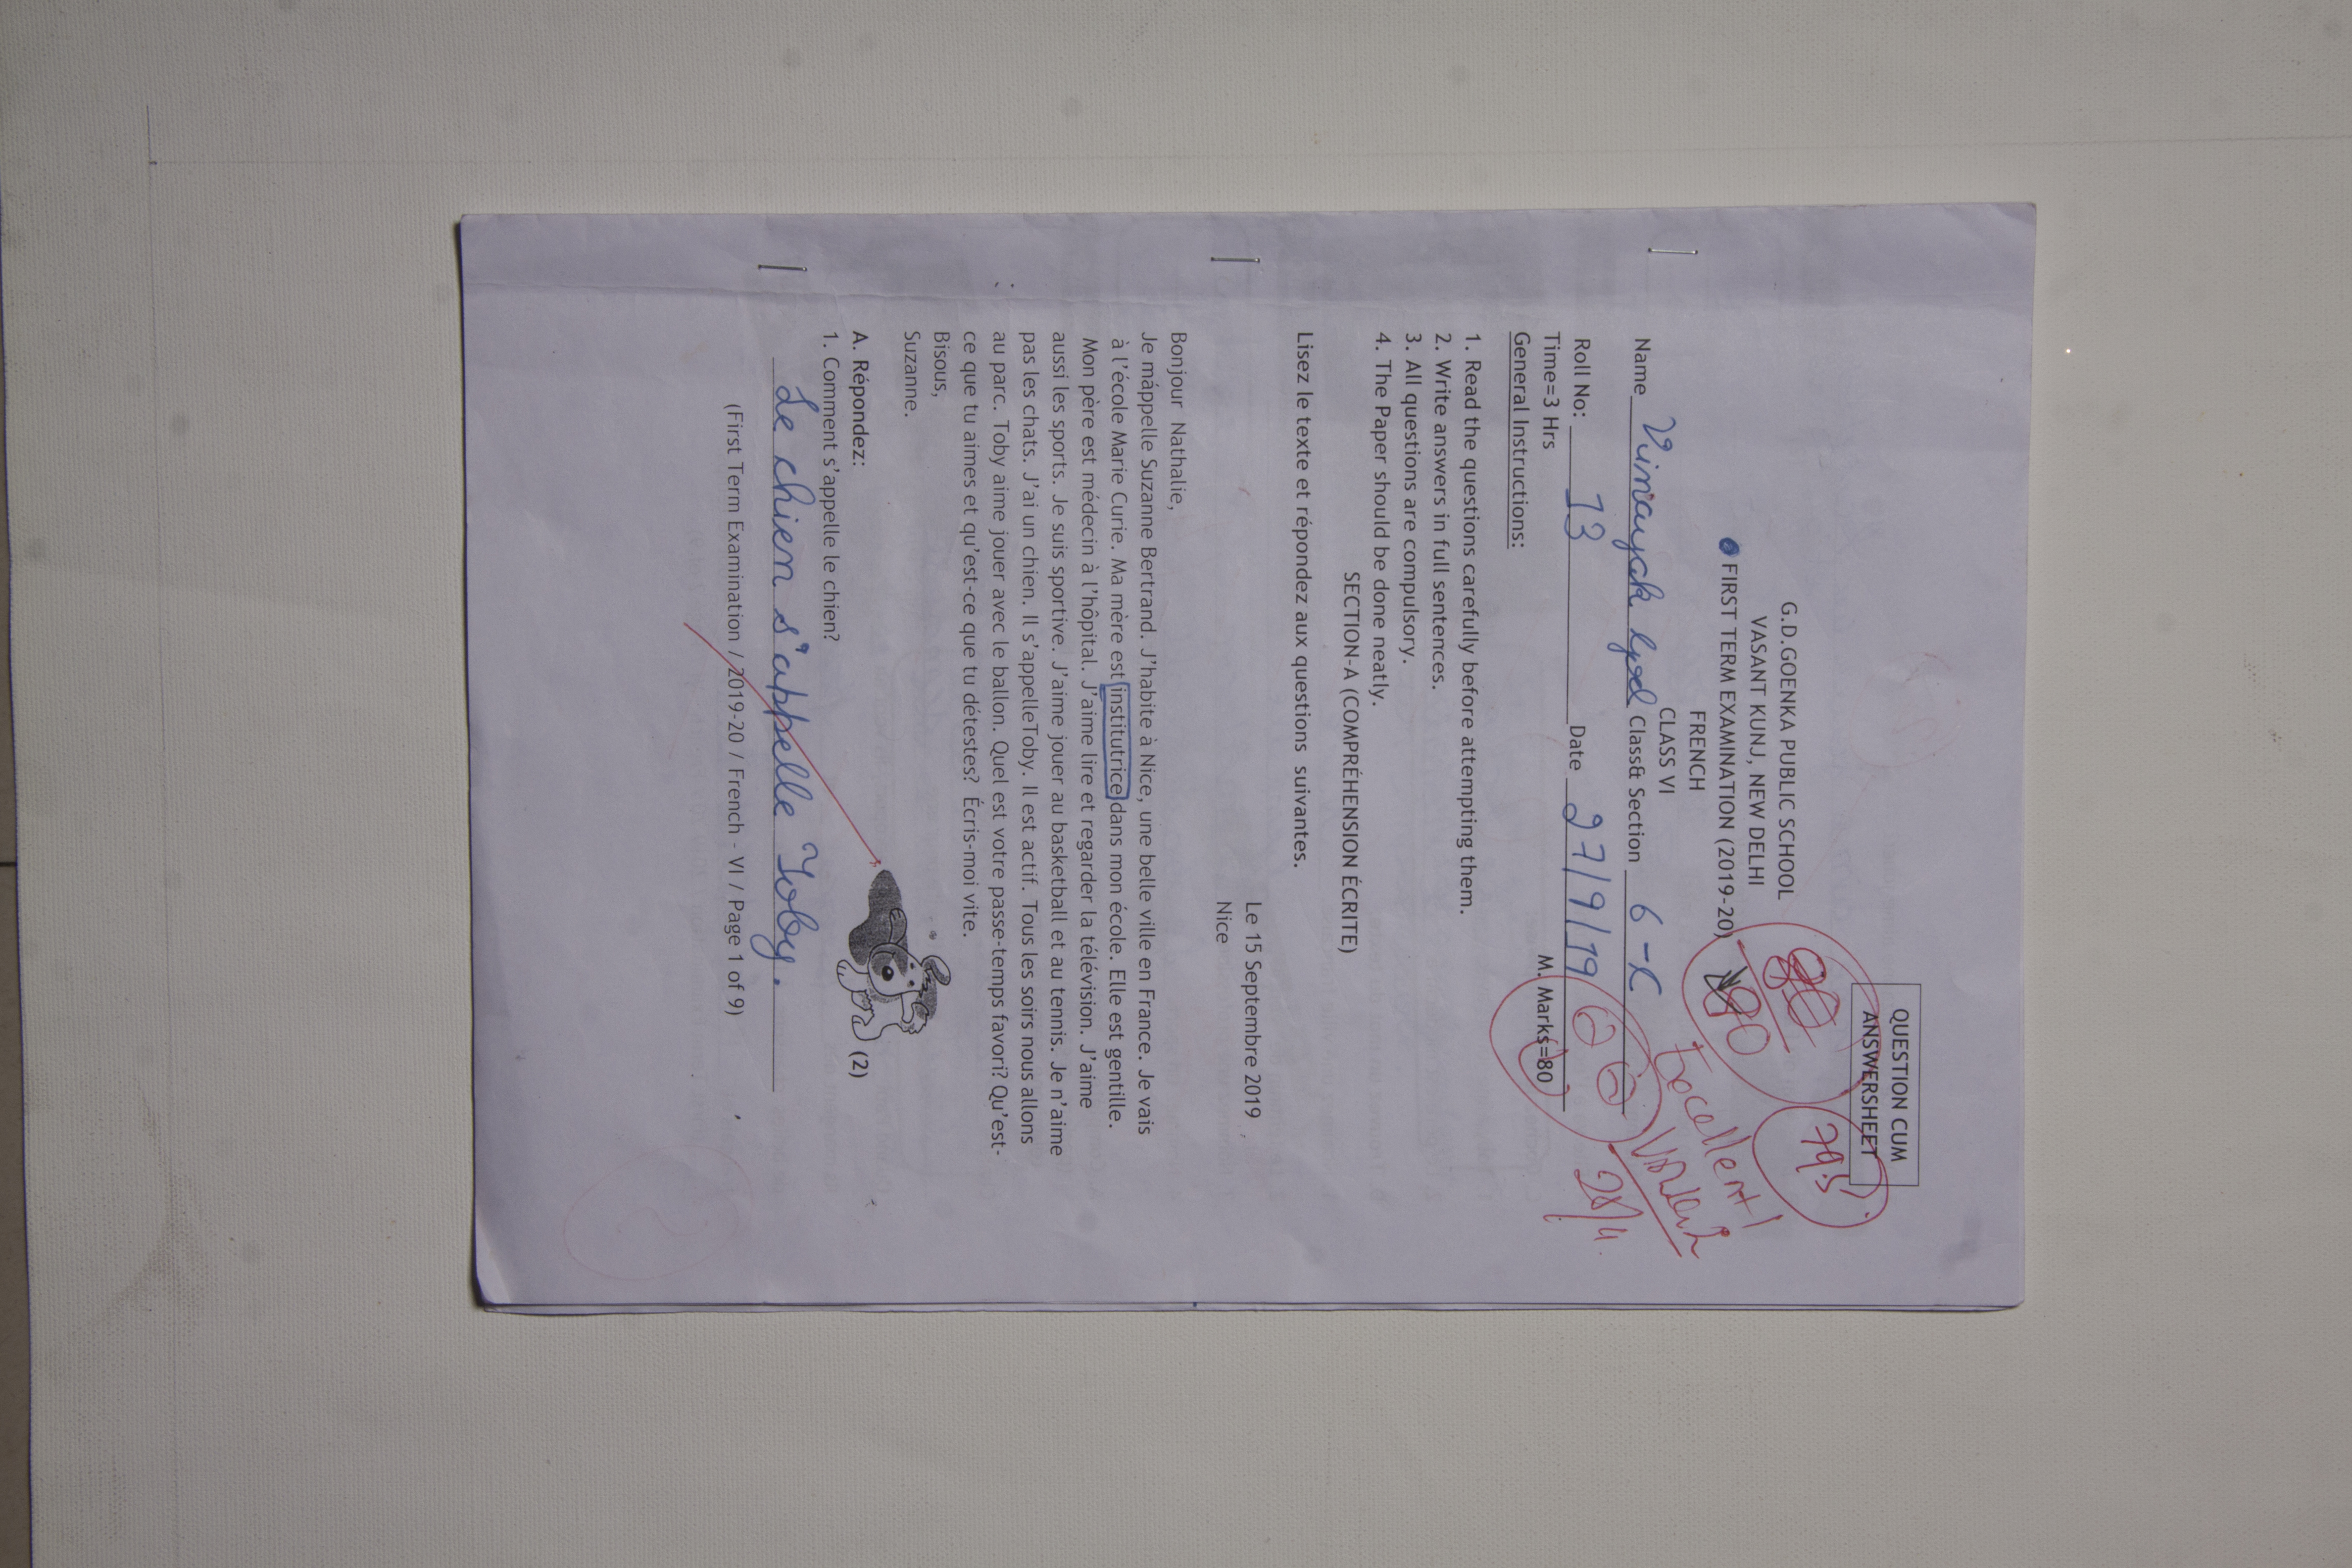 QUESTION CUM
ANSWERSHEET
79.5
G.D.GOENKA PUBLIC SCHOOL
VASANT KUNJ, NEW DELHI
FIRST TERM EXAMINATION (2019-20)
80
FRENCH
CLASS VI
Excellent!
Name Vinayak Goel Class& Section 6-C
Roll No: 13 Date 27/9/19
Time=3 Hrs M. Marks=80
General Instructions:
1. Read the questions carefully before attempting them.
2. Write answers in full sentences.
3. All questions are compulsory.
4. The Paper should be done neatly.
SECTION-A (COMPRÉHENSION ÉCRITE)
Lisez le texte et répondez aux questions suivantes.
Le 15 Septembre 2019
Nice
Bonjour Nathalie,
Je máppelle Suzanne Bertrand. J'habite à Nice, une belle ville en France. Je vais
à l'école Marie Curie. Ma mère est institutrice dans mon école. Elle est gentille.
Mon père est médecin à l'hôpital. J'aime lire et regarder la télévision. J'aime
aussi les sports. Je suis sportive. J'aime jouer au basketball et au tennis. Je n'aime
pas les chats. J'ai un chien. Il s'appelleToby. Il est actif. Tous les soirs nous allons
au parc. Toby aime jouer avec le ballon. Quel est votre passe-temps favori? Qu'est-
ce que tu aimes et qu'est-ce que tu détestes? Écris-moi vite.
Bisous,
Suzanne.
A. Répondez: (2)
1. Comment s'appelle le chien?
Le chien s'appelle Toby.
(First Term Examination / 2019-20 / French - VI / Page 1 of 9)